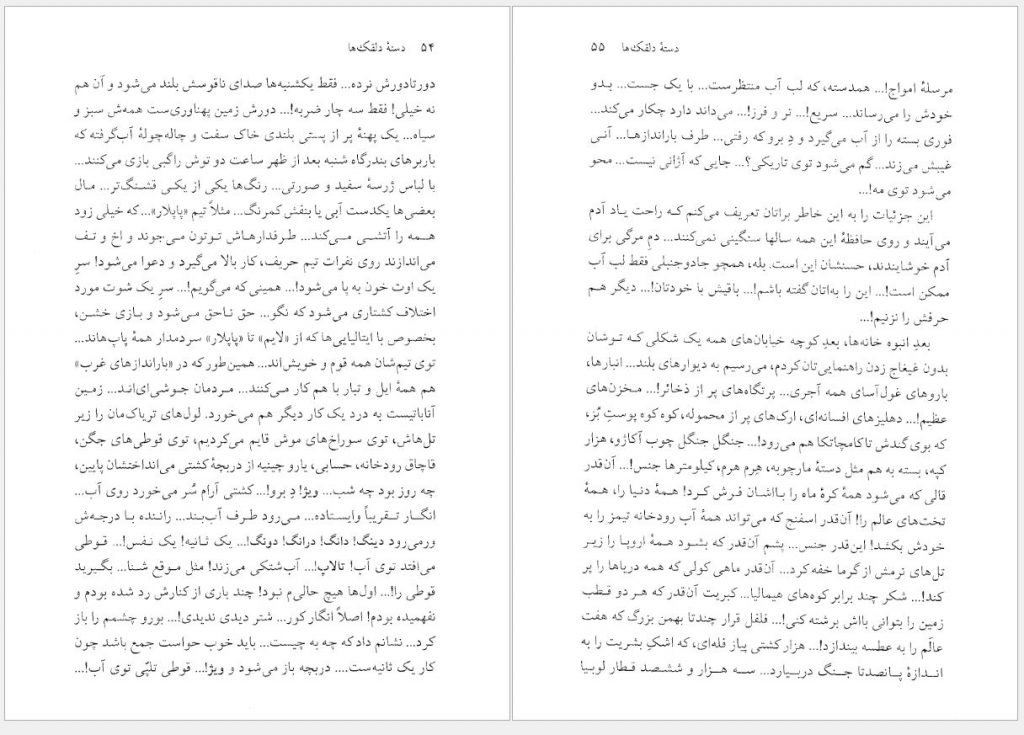 ۵۴ دستهٔ دلقک‌ها
دورتادورش نرده... فقط یکشنبه‌ها صدای ناقوسش بلند می‌شود و آن هم
نه خیلی! فقط سه چار ضربه!... دورش زمین پهناوری‌ست همه‌ش سبز و
سیاه... یک پهنهٔ پر از پستی بلندی خاک سفت و چاله‌چولهٔ آب‌گرفته که
باربرهای بندرگاه شنبه بعد از ظهر ساعت دو توش راگبی بازی می‌کنند...
با لباس ژرسهٔ سفید و صورتی... رنگ‌ها یکی از یکی قشنگ‌تر... مال
بعضی‌ها یکدست آبی یا بنفش کمرنگ... مثلاً تیم «پاپلار»... که خیلی زود
همه را آتشی می‌کند... طرفدارهاش توتون می‌جوند و اخ و تف
می‌اندازند روی نفرات تیم حریف، کار بالا می‌گیرد و دعوا می‌شود! سرِ
یک اوت خون به پا می‌شود!... همینی که می‌گویم!... سرِ یک شوت مورد
اختلاف کشتاری می‌شود که نگو... حق ناحق می‌شود و بازی خشن،
بخصوص با ایتالیایی‌ها که از «لایم» تا «پاپلار» سردمدار همهٔ پاپ‌هاند...
توی تیم‌شان همه قوم و خویش‌اند... همین‌طور که در «باراندازهای غرب»
هم همهٔ ایل و تبار با هم کار می‌کنند... مردمان جوشی‌ای‌اند... زمین
آناباتیست به درد یک کار دیگر هم می‌خورد. لول‌های تریاک‌مان را زیر
تل‌هاش، توی سوراخ‌های موش قایم می‌کردیم، توی قوطی‌های چگن،
قاچاق رودخانه، حسابی، یارو چینیه از دریچهٔ کشتی می‌انداختشان پایین،
چه روز بود چه شب... ویژ! دِ برو!... کشتی آرام سُر می‌خورد روی آب...
انگار تقریباً وایستاده... می‌رود طرف آب‌بند... راننده با درجه‌ش
ورمی‌رود دینگ! دانگ! درانگ! دونگ!... یک ثانیه! یک نفس!... قوطی
می‌افتد توی آب! تالاپ!... آب‌شتکی می‌زند! مثل موقع شنا... بگیرید
قوطی را!... اول‌ها هیچ حالی‌م نبود! چند باری از کنارش رد شده بودم و
نفهمیده بودم! اصلاً انگار کور... شتر دیدی ندیدی!... بورو چشمم را باز
کرد... نشانم داد که چه به چیست... باید خوب حواست جمع باشد چون
کار یک ثانیه‌ست.... دریچه باز می‌شود و ویژ!... قوطی تلپّی توی آب!...
۵۵ دستهٔ دلقک‌ها
مرسلهٔ امواج!... همدسته، که لب آب منتظرست... با یک جست... بدو
خودش را می‌رساند... سریع!... نر و فرز!... می‌داند دارد چکار می‌کند...
فوری بسته را از آب می‌گیرد و دِ برو که رفتی... طرف باراندازها... آنی
غیبش می‌زند... گم می‌شود توی تاریکی؟... جایی که آژانی نیست... محو
می‌شود توی مه!...
این جزئیات را به این خاطر براتان تعریف می‌کنم که راحت یاد آدم
می‌آیند و روی حافظهٔ این همه سالها سنگینی نمی‌کنند... دمِ مرگی برای
آدم خوشایندند، حسنشان این است. بله، همچو جادوجنبلی فقط لب آب
ممکن است!... این را به‌اتان گفته باشم!... باقیش با خودتان!... دیگر هم
حرفش را نزنیم!...
بعدِ انبوه خانه‌ها، بعدِ کوچه خیابان‌های همه یک شکلی که توشان
بدون غیغاج زدن راهنمایی‌تان کردم، می‌رسیم به دیوارهای بلند... انبارها،
باروهای غول‌آسای همه آجری... پرتگاه‌های پر از ذخائر!... مخزن‌های
عظیم!... دهلیزهای افسانه‌ای، ارک‌های پر از محموله، کوه کوه پوستِ بُز،
که بوی گندش تا کامچاتکا هم می‌رود!... جنگل جنگل چوب آکاژو، هزار
کپه، بسته به هم مثل دستهٔ مارچوبه، هِرِم هرم، کیلومترها جنس!... آن‌قدر
قالی که می‌شود همهٔ کرهٔ ماه را بااشان فرش کرد! همهٔ دنیا را، همهٔ
تخت‌های عالم را! آن‌قدر اسفنج که می‌تواند همهٔ آب رودخانه تیمز را به
خودش بکشد! این‌قدر جنس... پشم آن‌قدر که بشود همهٔ اروپا را زیر
تل‌های نرمش از گرما خفه کرد... آن‌قدر ماهی کولی که همه دریاها را پر
کند!... شکر چند برابر کوه‌های هیمالیا... کبریت آن‌قدر که هر دو قطب
زمین را بتوانی بااش برشته کنی!... فلفل قرار چندتا بهمن بزرگ که هفت
عالَم را به عطسه بیندازد!... هزار کشتی پیاز فله‌ای، که اشکِ بشریت را به
اندازهٔ پانصدتا جنگ دربیارد... سه هزار و ششصد قطار لوبیا